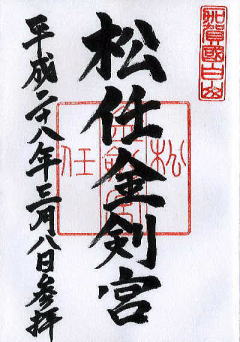 加賀國白山
松任金剣宮
松任
平成二十八年三月八日参拝